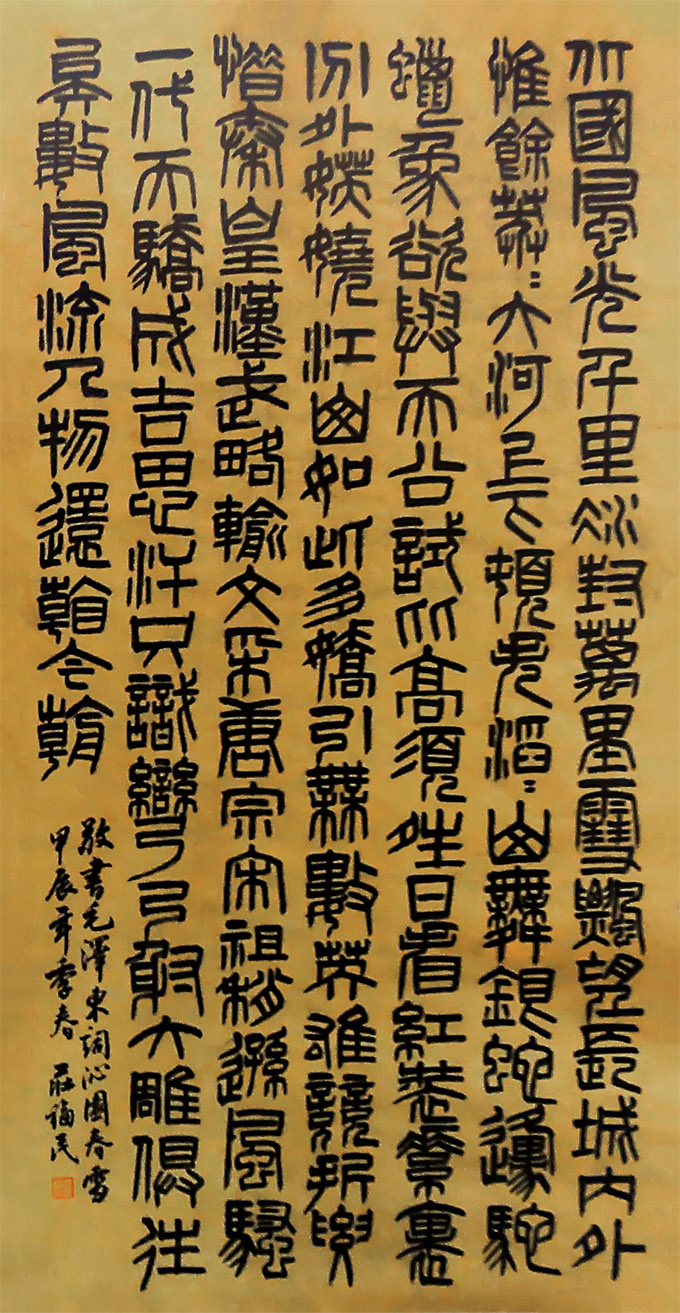 北國風光千里冰封萬里雪飄望長城內外
惟餘莽〻大河上下頓失滔〻山舞銀蛇邍馳
蠟象欲與天公試比高須晴日看紅裝素裹
分外妖嬈江山如此多嬌引無數英雄競折腰
惜秦皇漢武略輸文采唐宗宋祖稍遜風騷
一代天驕成吉思汗只識彎弓射大雕俱往
矣數風流人物還看今朝
敬書毛澤東詞沁園春雪
甲辰年季春 莊福民